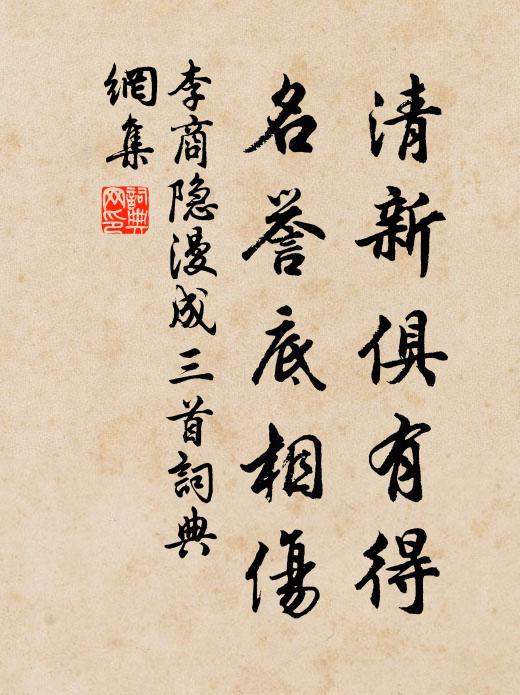 清新俱有得
名誉底相傷
李商隐漫成三首詞典
網集
詞典網印